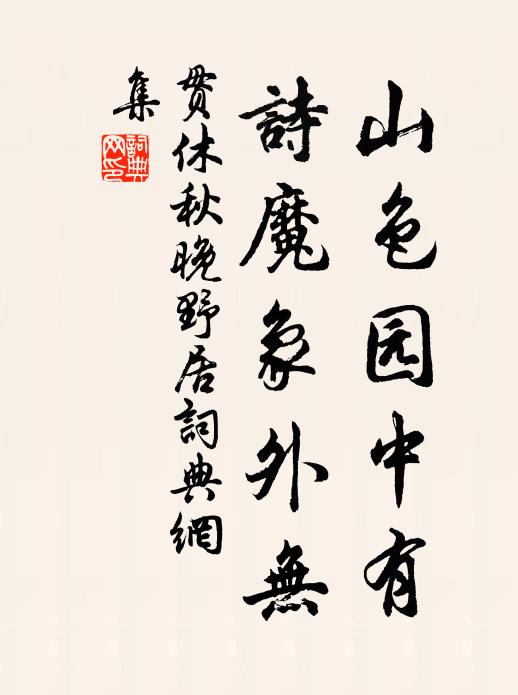 山色园中有
詩魔象外無
贯休秋晚野居詞典網
集
詞典網印